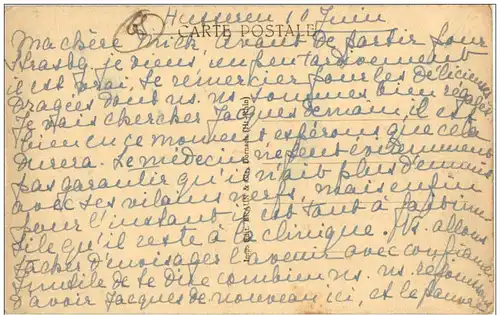 Husseren 10 Juin
CARTE POSTALE
Ma chère Mick, Avant de partir pour
Strasbg. je viens, un peu tardivement
il est vrai, te remercier pour les délicieuses
dragées dont ns. ns. sommes bien régalés
Je vais chercher Jacques demain, il est
bien en ce moment espérons que cela
durera. Le médecin ne peut évidemment
pas garantir qu'il n'ait plus d'ennuis
avec ses vilains nerfs, mais enfin
pour l'instant il est tout à fait
qu'il reste à la clinique. Ns. allons
tâcher d'envisager l'avenir avec confiance
Inutile de te dire combien ns. ns.
d'avoir Jacques de nouveau ici, et le pauvre